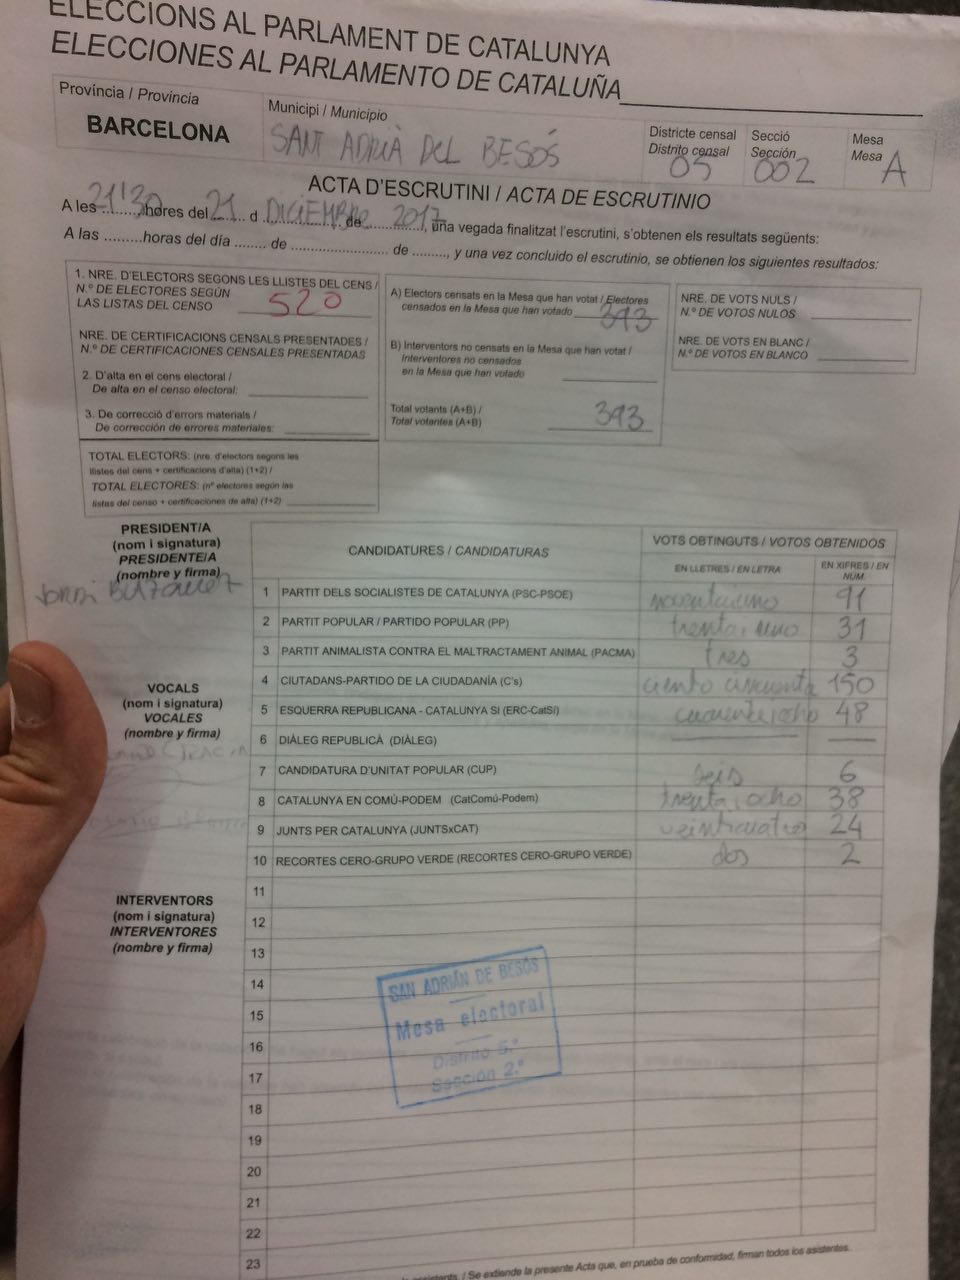 ELECCIONS AL PARLAMENT DE CATALUNYA
ELECCIONES AL PARLAMENTO DE CATALUÑA
Província / Provincia
BARCELONA
Municipi / Municipio
SANT ADRIÀ DEL BESÓS
Districte censal
Distrito censal
05
Secció
Sección
002
Mesa
Mesa
A
ACTA D'ESCRUTINI / ACTA DE ESCRUTINIO
A les 21'30 hores del 21 d DICIEMBRE de 2017, una vegada finalitzat l'escrutini, s'obtenen els resultats següents:
A las .........horas del día ........ de ........................ de ........, y una vez concluido el escrutinio, se obtienen los siguientes resultados:
1. NRE. D'ELECTORS SEGONS LES LLISTES DEL CENS /
N.º DE ELECTORES SEGÚN
LAS LISTAS DEL CENSO 520
NRE. DE CERTIFICACIONS CENSALS PRESENTADES /
N.º DE CERTIFICACIONES CENSALES PRESENTADAS
2. D'alta en el cens electoral /
De alta en el censo electoral:
3. De correcció d'errors materials /
De corrección de errores materiales:
TOTAL ELECTORS: (nre. d'electors segons les
llistes del cens + certificacions d'alta) (1+2) /
TOTAL ELECTORES: (nº electores según las
listas del censo + certificaciones de alta) (1+2)
A) Electors censats en la Mesa que han votat / Electores
censados en la Mesa que han votado 393
B) Interventors no censats en la Mesa que han votat /
Interventores no censados
en la Mesa que han votado
Total votants (A+B) /
Total votantes (A+B) 393
NRE. DE VOTS NULS /
N.º DE VOTOS NULOS
NRE. DE VOTS EN BLANC /
N.º DE VOTOS EN BLANCO
PRESIDENT/A
(nom i signatura)
PRESIDENTE/A
(nombre y firma)
VOCALS
(nom i signatura)
VOCALES
(nombre y firma)
INTERVENTORS
(nom i signatura)
INTERVENTORES
(nombre y firma)
CANDIDATURES / CANDIDATURAS
VOTS OBTINGUTS / VOTOS OBTENIDOS
EN LLETRES / EN LETRA
EN XIFRES / EN NÚM.
1 PARTIT DELS SOCIALISTES DE CATALUNYA (PSC-PSOE) noventaiuno 91
2 PARTIT POPULAR / PARTIDO POPULAR (PP) trentaiuno 31
3 PARTIT ANIMALISTA CONTRA EL MALTRACTAMENT ANIMAL (PACMA) tres 3
4 CIUTADANS-PARTIDO DE LA CIUDADANÍA (C's) ciento cincuenta 150
5 ESQUERRA REPUBLICANA - CATALUNYA SÍ (ERC-CatSí) cuarentaiocho 48
6 DIÀLEG REPUBLICÀ (DIÀLEG)
7 CANDIDATURA D'UNITAT POPULAR (CUP) seis 6
8 CATALUNYA EN COMÚ-PODEM (CatComú-Podem) trentaiocho 38
9 JUNTS PER CATALUNYA (JUNTSxCAT) veinticuatro 24
10 RECORTES CERO-GRUPO VERDE (RECORTES CERO-GRUPO VERDE) dos 2
11
12
13
14
15
16
17
18
19
20
21
22
23
SAN ADRIÁN DE BESÓS
Mesa electoral
Distrito 5.º
Sección 2.ª
/ Se extiende la presente Acta que, en prueba de conformidad, firman todos los asistentes.